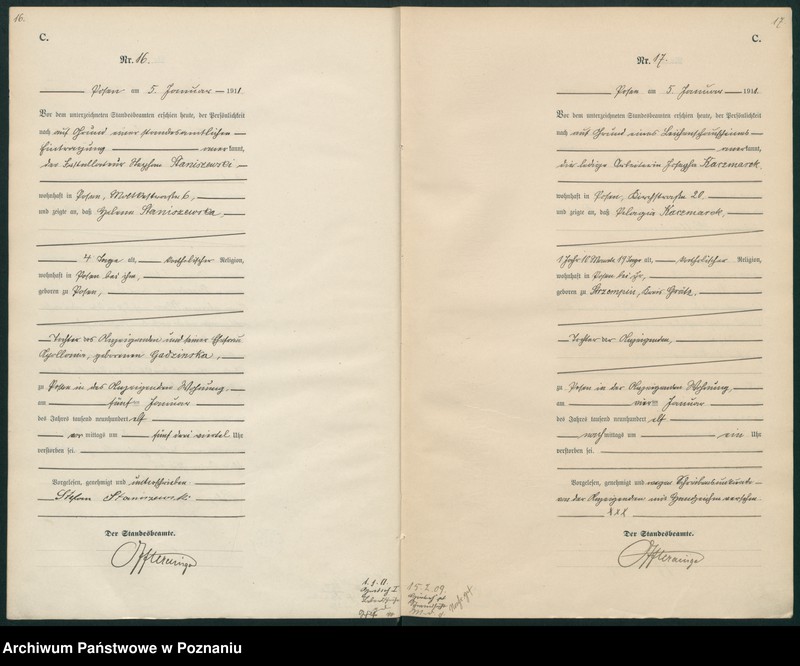 16.
C.
Nr. 16.
Posen am 5. Januar 1911.
Vor dem unterzeichneten Standesbeamten erschien heute, der Persönlichkeit
nach auf Grund einer standesamtlichen
Eintragung anerkannt,
der Installateur Stephan Staniszewski
wohnhaft in Posen, Moltkestraße 6,
und zeigte an, daß Helena Staniszewska,
4 Tage alt, katholischer Religion,
wohnhaft in Posen bei ihm,
geboren zu Posen,
Tochter des Anzeigenden und seiner Ehefrau
Apollonia, geborenen Gadzinska,
zu Posen in des Anzeigenden Wohnung,
am fünften Januar
des Jahres tausend neunhundert elf
vormittags um fünf drei viertel Uhr
verstorben sei.
Vorgelesen, genehmigt und unterschrieben
Stefan Staniszewski
Der Standesbeamte.
17.
C.
Nr. 17.
Posen am 5. Januar 1911.
Vor dem unterzeichneten Standesbeamten erschien heute, der Persönlichkeit
nach auf Grund eines Leichenschauscheins
anerkannt,
die ledige Arbeiterin Josepha Kaczmarek,
wohnhaft in Posen, 20.
und zeigte an, daß Pelagia Kaczmarek,
1 Jahr 10 Monate 19 Tage alt, katholischer Religion,
wohnhaft in Posen bei ihr,
geboren zu Strzempin, Kreis Grätz,
Tochter der Anzeigenden,
zu Posen in der Anzeigenden Wohnung,
am vierten Januar
des Jahres tausend neunhundert elf
nachmittags um ein Uhr
verstorben sei.
Vorgelesen, genehmigt und wegen Schreibensunkunde
von der Anzeigenden mit Handzeichen versehen
xxx
Der Standesbeamte.
15.2.09.
Archiwum Państwowe w Poznaniu